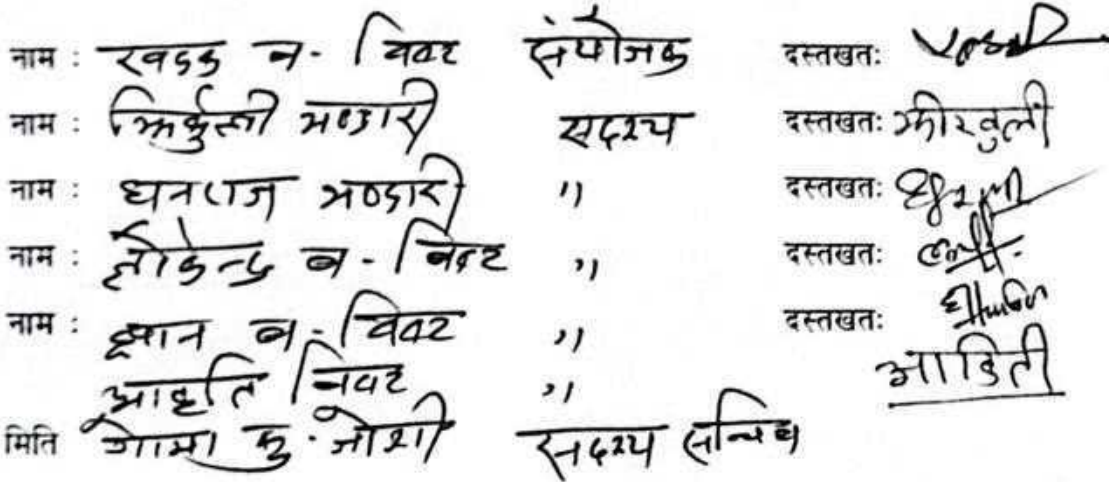 नाम : खडक ब. विक्ट संयोजक दस्तखतः
नाम : झिर्कुली भण्डारी सदस्य दस्तखतः झीरकुली
नाम : धनराज भण्डारी " दस्तखतः
नाम : लोकेन्द्र ब. विक्ट " दस्तखतः
नाम : ज्ञान ब. विक्ट " दस्तखतः
आकृति विक्ट " आकृती
मिति गोमा कु. जोशी सदस्य सचिव